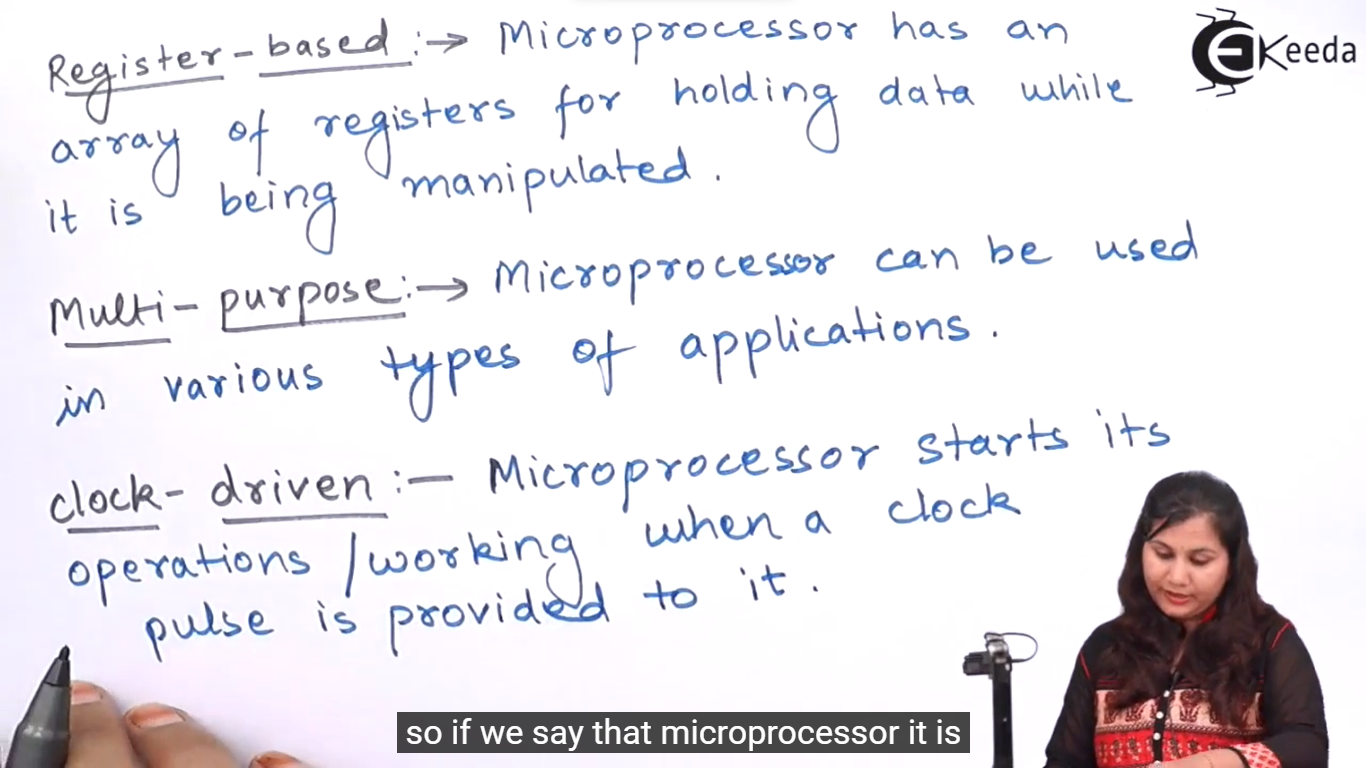 Register-based :→ Microprocessor has an
array of registers for holding data while
it is being manipulated.
Multi-purpose :→ Microprocessor can be used
in various types of applications.
clock-driven :— Microprocessor starts its
operations/working when a clock
pulse is provided to it.
EKeeda
so if we say that microprocessor it is